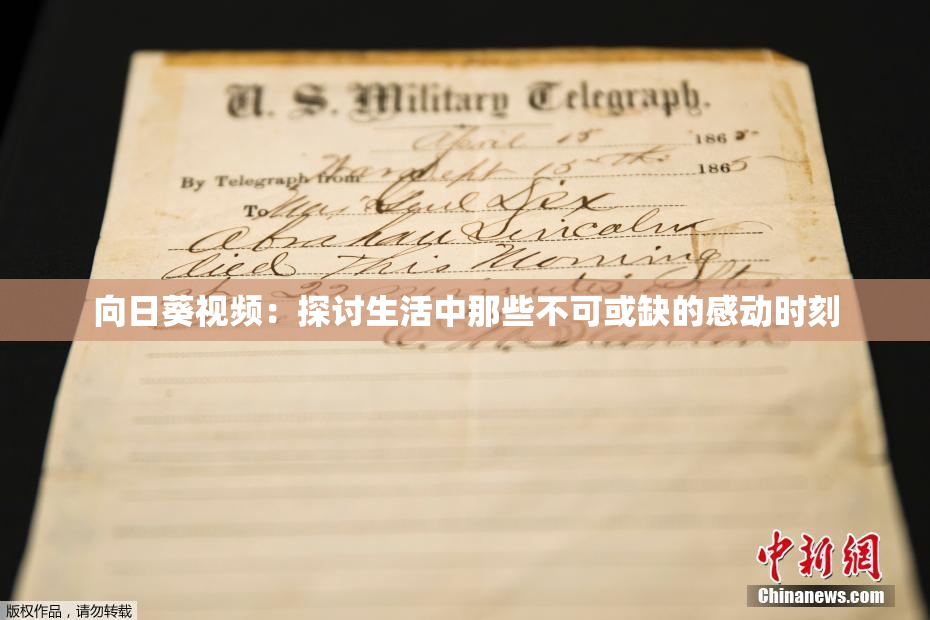 U. S. Military Telegraph.
April 15 1865
By Telegraph from War Dept 15th 1865
To Maj Genl Dix
Abraham Lincoln
died This Morning
at 22 minutes after
向日葵视频：探讨生活中那些不可或缺的感动时刻
E. M. Stanton
中新网
Chinanews.com
版权作品，请勿转载